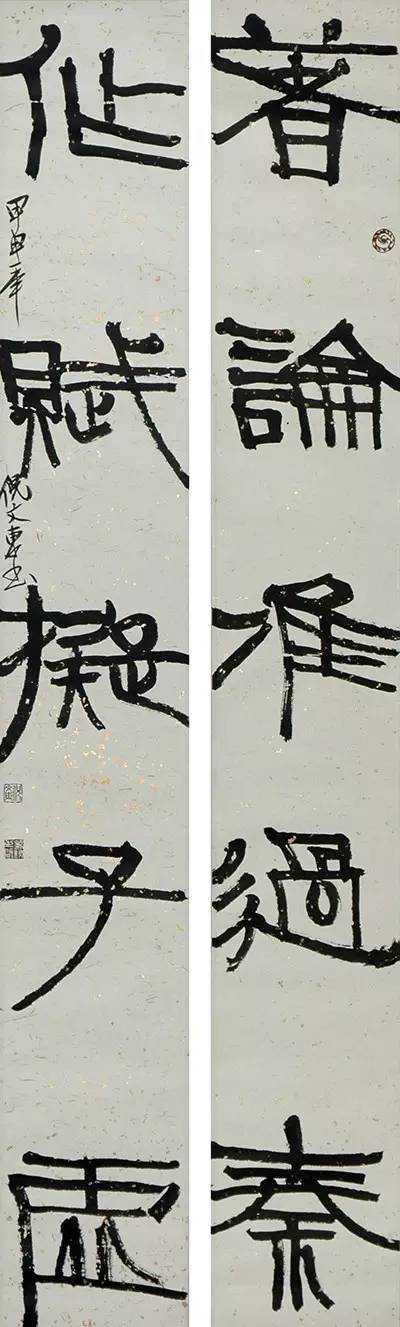 著論准過秦
作賦擬子虛
甲申年
倪文東书